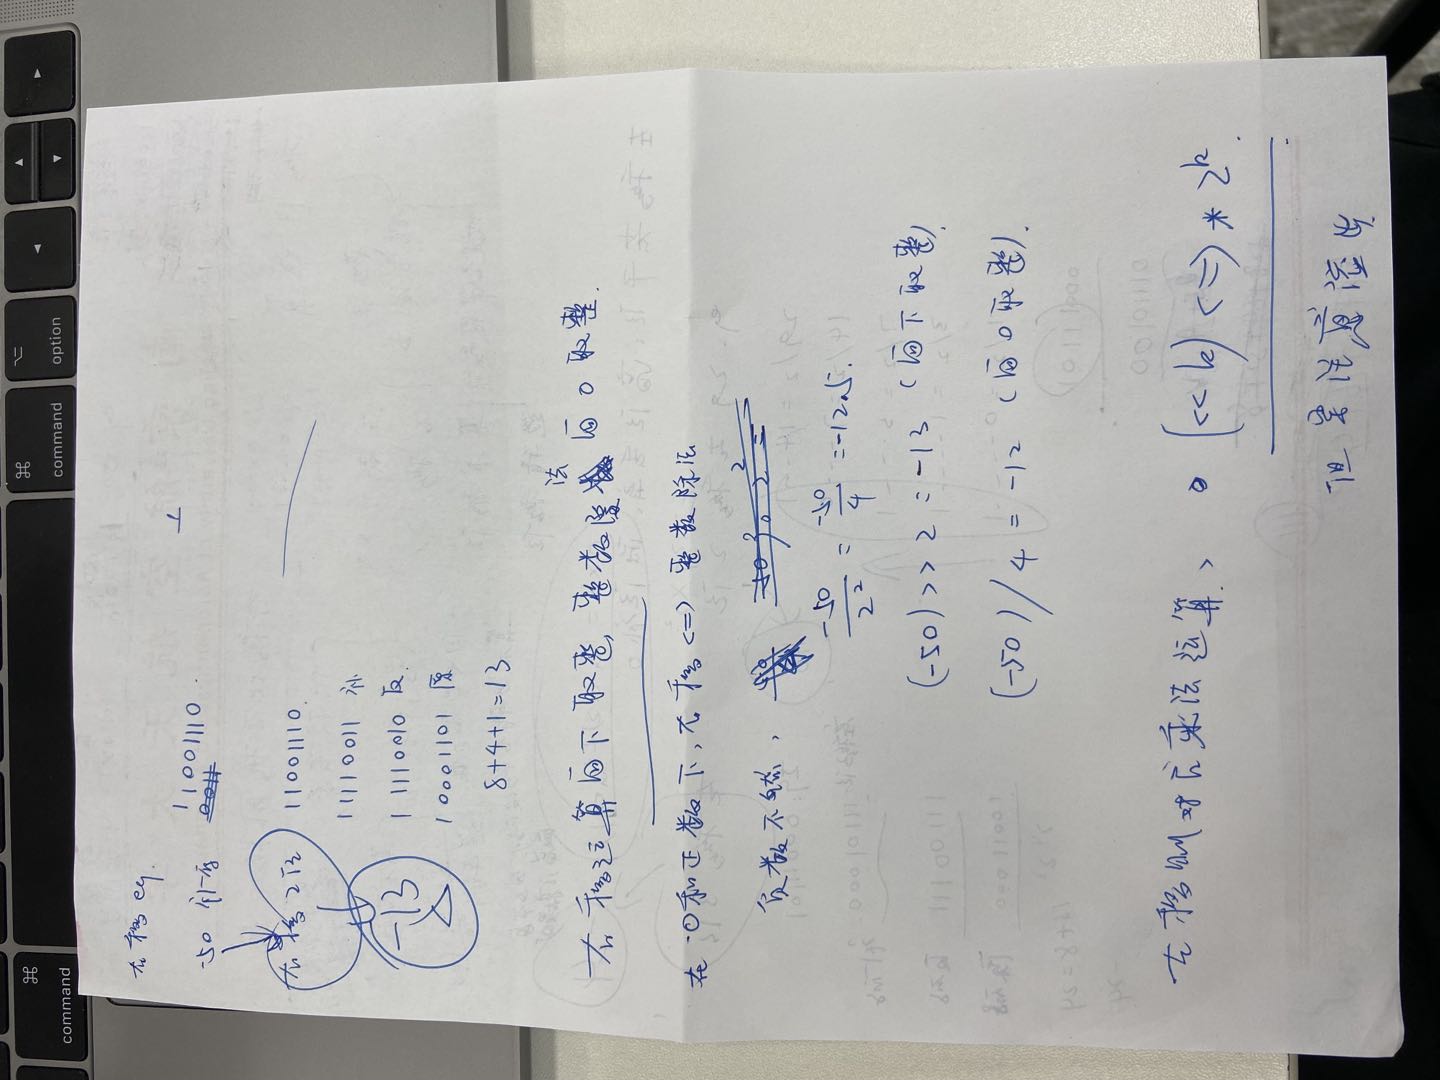 command
⌘
⌘
command
⌥
option
右移 eg.
-50 补码 11001110
右移2位 11001110
11110011 补
-13 11110010 反
10001101 原
8+4+1=13
右移运算向下取整,整数除法向0取整.
在 0和正数下,右移<=>整数除法
负数不然,
-50/2² = -50/4 = -12.5.
(-50)>>2 = -13 (向下取整)
(-50)/4 = -12 (向0取整).
左移则对应乘法运算、 (<<k) <=> * 2^k.
但要注意溢出